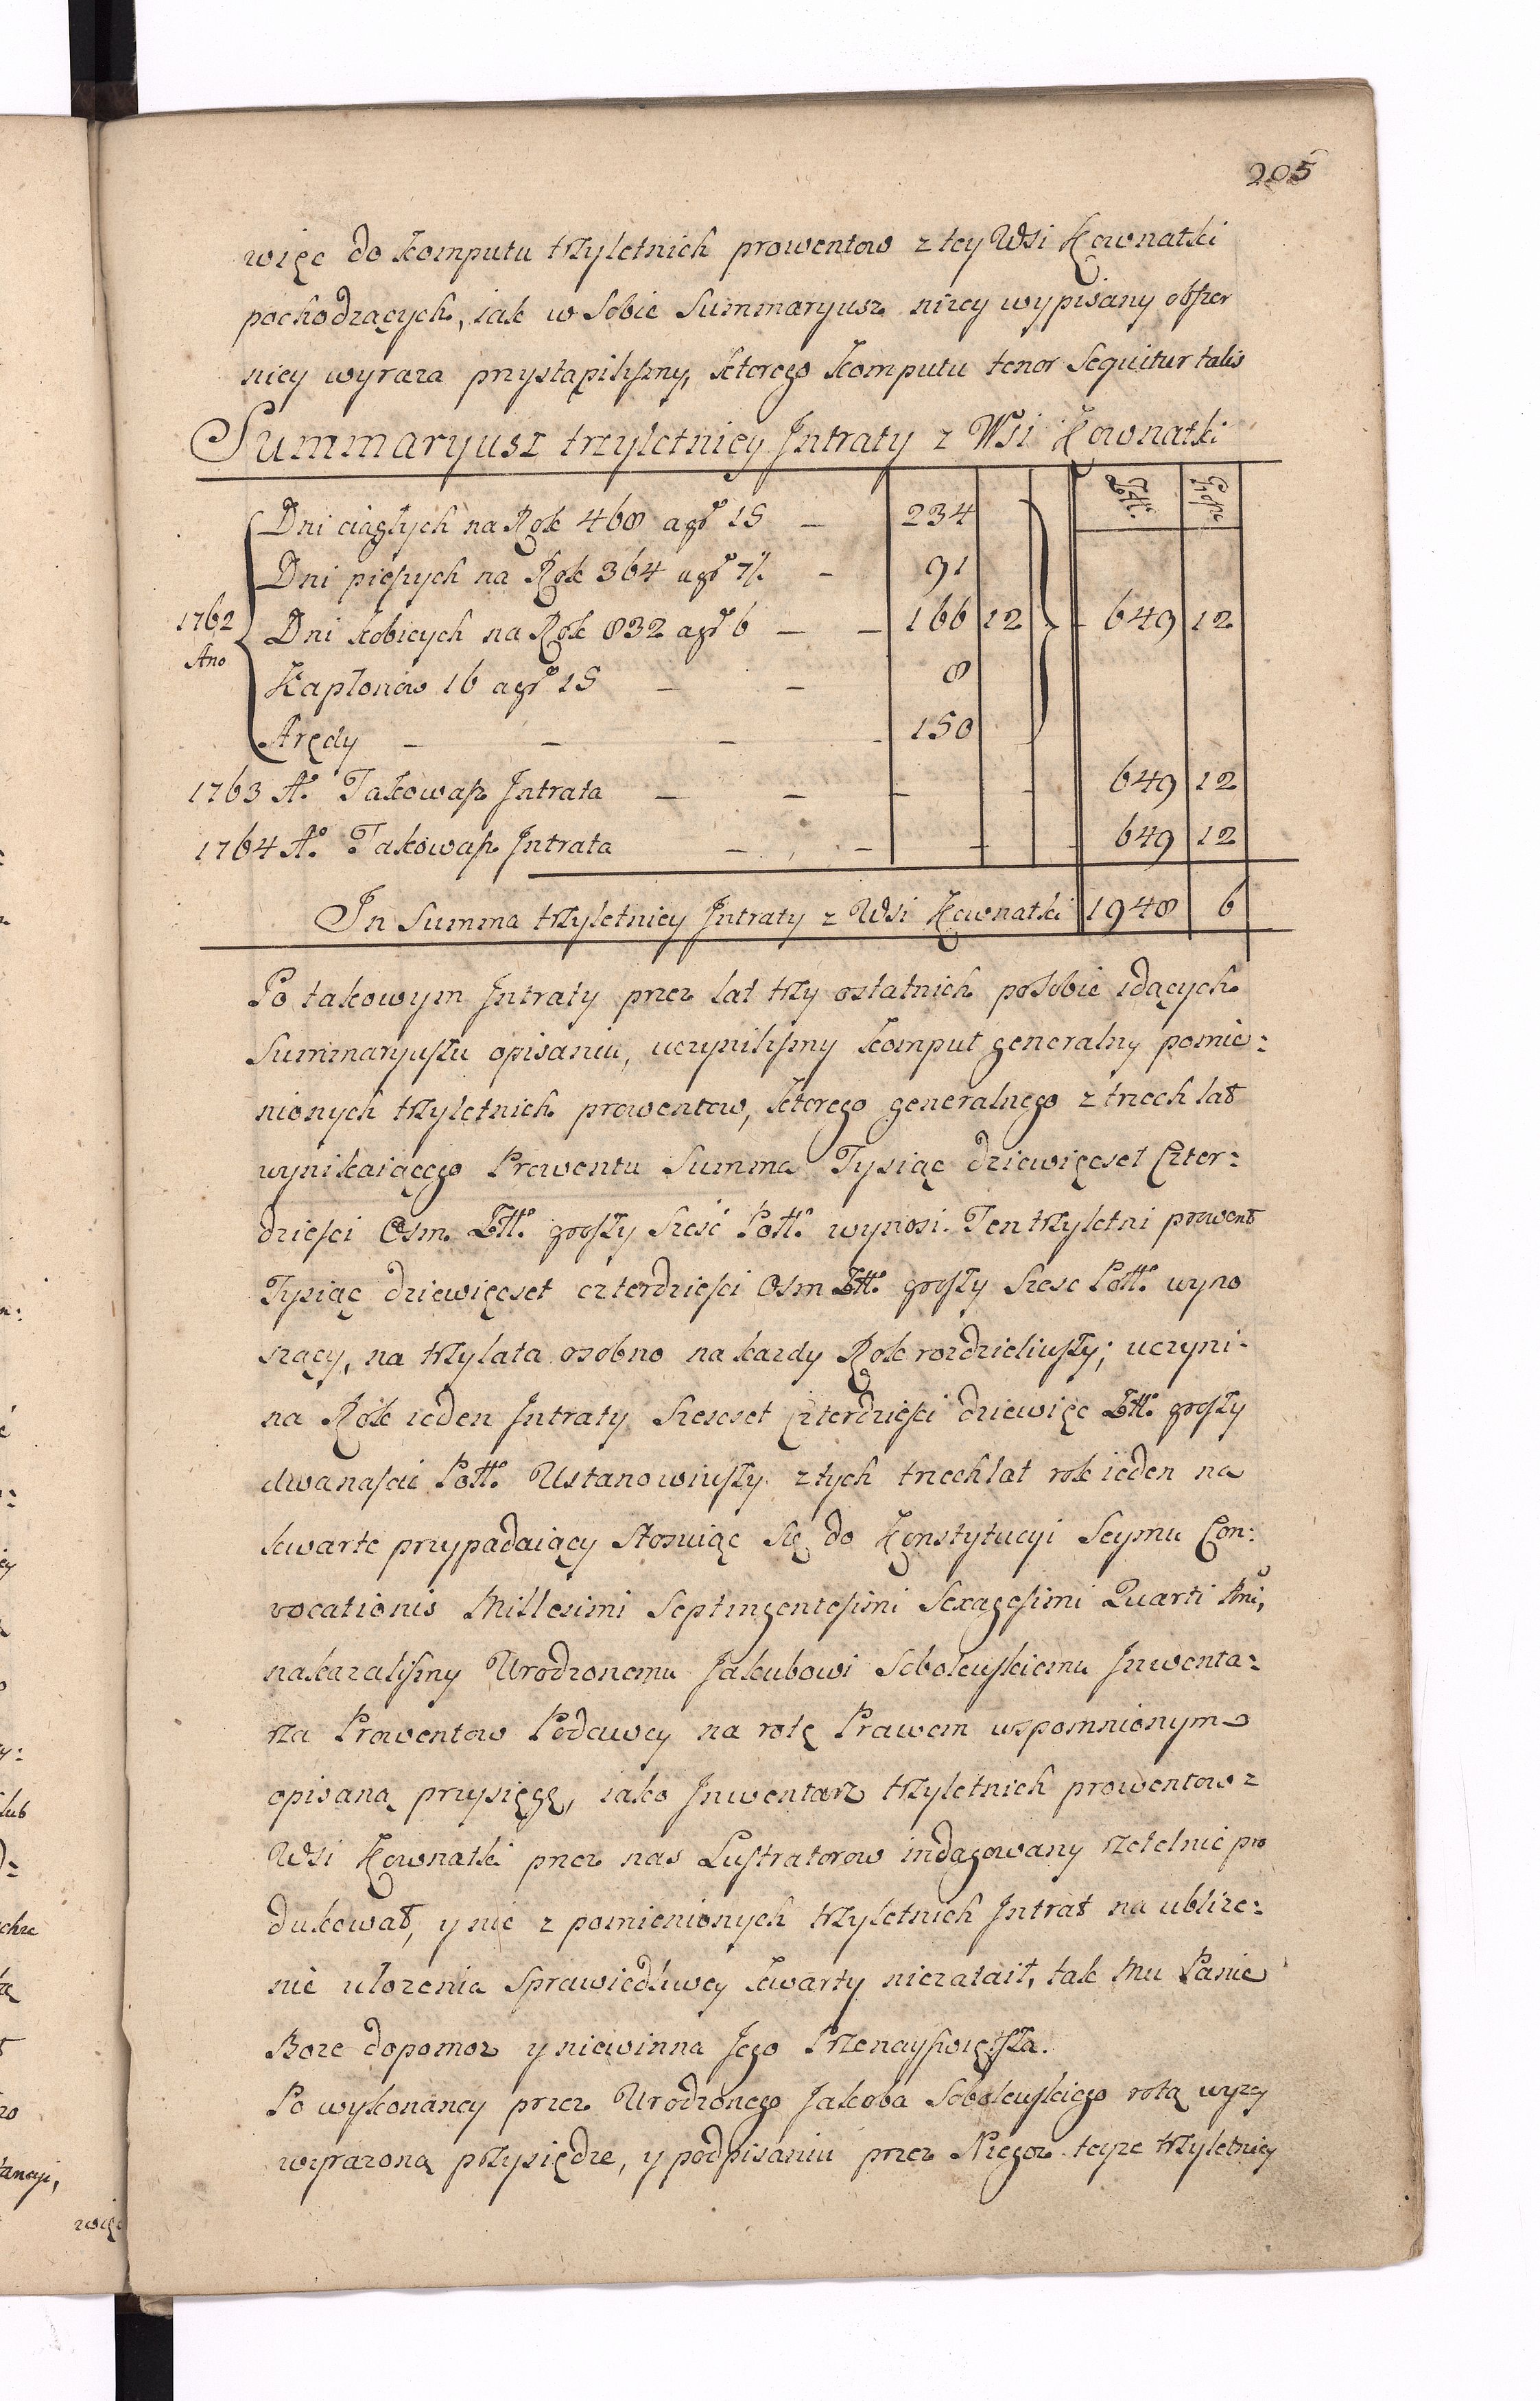 205
więc do komputu trzyletnich prowentow z tey Wsi Kownatki
pochodzących, iak w sobie Summaryusz nizey wypisany obszer
niey wyraza przystąpiliszmy, ktorego komputu tenor sequitur talis
Summaryusz trzyletniey Intraty z Wsi Kownatki
Zttt. Grpl.
Dni ciągłych na Rok 468 a gro 15 — 234
Dni pieszych na Rok 364 a gro 7½ — 91
1762 Ano Dni kobiecych na Rok 832 a gro 6 — — 166 12 — 649 12
Kapłonów 16 a gro 15 — — 8
Arędy — — — — 150
1763 Ao. Takoważ Intrata — — — — 649 12
1764 Ao. Takoważ Intrata — — — — 649 12
In Summa trzyletniey Intraty z Wsi Kownatki 1948 6
Po takowym Intraty przez lat trzy ostatnich posobie idących
Summaryuszu opisaniu, uczyniliszmy komput generalny pomie:
nionych trzyletnich prowentow, ktorego generalnego z trzech lat
wynikaiącego Prowentu Summa Tysiąc dziewięcset Czter:
dzieści Osm Ztt. groszy Sześć Pott. wynosi. Ten trzyletni prowent
Tysiąc dziewięcset czterdzieści Osm Ztt. groszy Szesc Pott. wyno
szący, na trzy lata osobno na kazdy Rok rozdzieliwszy; uczyni
na Rok ieden Intraty Szescset Czterdzieści dziewięc Ztt. groszy
dwanaście Pott. Ustanowiwszy z tych trzech lat rok ieden na
kwarte przypadaiący stosuiąc się do Konstytucyi Seymu Con:
vocationis Millesimi Septingentesimi Sexagesimi Quarti Ani,
nakazaliszmy Urodzonemu Jakubowi Sobolewskiemu Inwenta:
rza Prowentow Podawcy na rotę Prawem wspomnionym
opisaną przysięgę, iako Inwentarz trzyletnich prowentow z
Wsi Kownatki przez nas Lustratorow indagowany rzetelnie pro
dukował, y nic z pomienionych trzyletnich Intrat na ublize:
nie ułozenia sprawiedliwey kwarty niezataił, tak Mu Panie
Boze dopomoz y niewinna Jego Przenayświętsza.
Po wykonaney przez Urodzonego Jakoba Sobolewskiego rotą wyzey
wyrazoną przysiędze, y podpisaniu przez Niegoz teyze trzyletniey